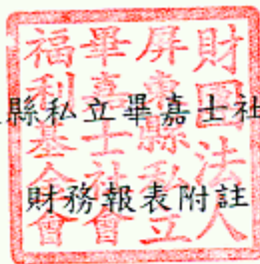 財團法人
屏東縣私立
畢嘉士社會
福利基金會
縣私立畢嘉士社
財務報表附註